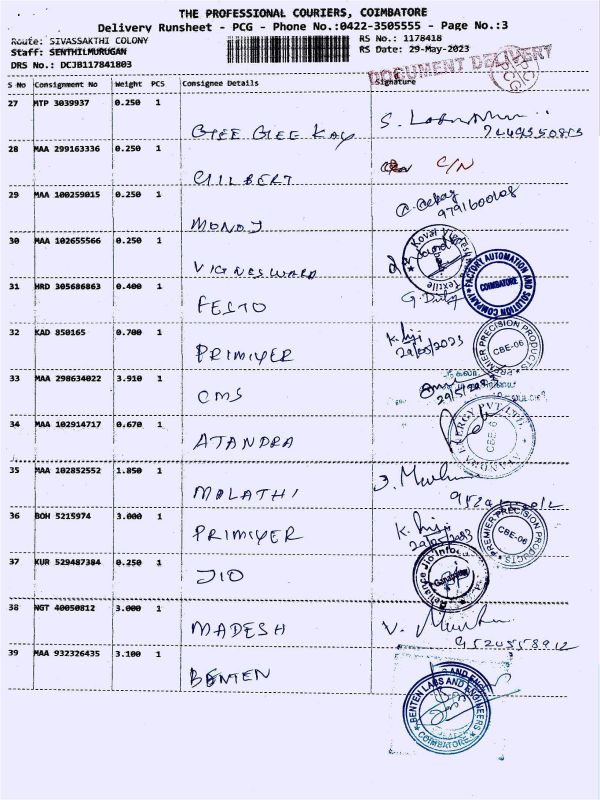 THE PROFESSIONAL COURIERS, COIMBATORE
Delivery Runsheet - PCG - Phone No.:0422-3505555 - Page No.:3
Route: SIVASSAKTHI COLONY RS No.: 1178418
Staff: SENTHILMURUGAN RS Date: 29-May-2023
DRS No.: DCJB117841803
DOCUMENT DELIVERY
PCG
S No Consignment No Weight PCS Consignee Details Signature
27 MTP 3039937 0.250 1
GEE GEE KAY S.
28 MAA 299163336 0.250 1
GILBERT C/N
29 MAA 100259015 0.250 1
MONDY 9791600608
30 MAA 102655566 0.250 1
VIGNESWARA
Kovai Vignesh Textile
31 HRD 305686863 0.400 1
FESTO
FACTORY AUTOMATION AND SOLUTION COMPANY COIMBATORE
32 KAD 850165 0.700 1
PRIMIYER 29/05/2023
PREMIER PRECISION PRODUCTS CBE-06
33 MAA 298634022 3.910 1
CMS 29/5/2023
34 MAA 102914717 0.670 1
ATANDRA
ATANDRA ENERGY PVT LTD. CBE
35 MAA 102852552 1.850 1
MALATHI
36 BOH 5215974 3.000 1
PRIMIYER 29/05/2023
PREMIER PRECISION PRODUCTS CBE-06
37 KUR 529487384 0.250 1
JIO
Reliance Jio Infoco
38 NGT 40050812 3.000 1
MADESH V.
39 MAA 932326435 3.100 1
BENTEN
BENTEN LABS AND ENGINEERS COIMBATORE